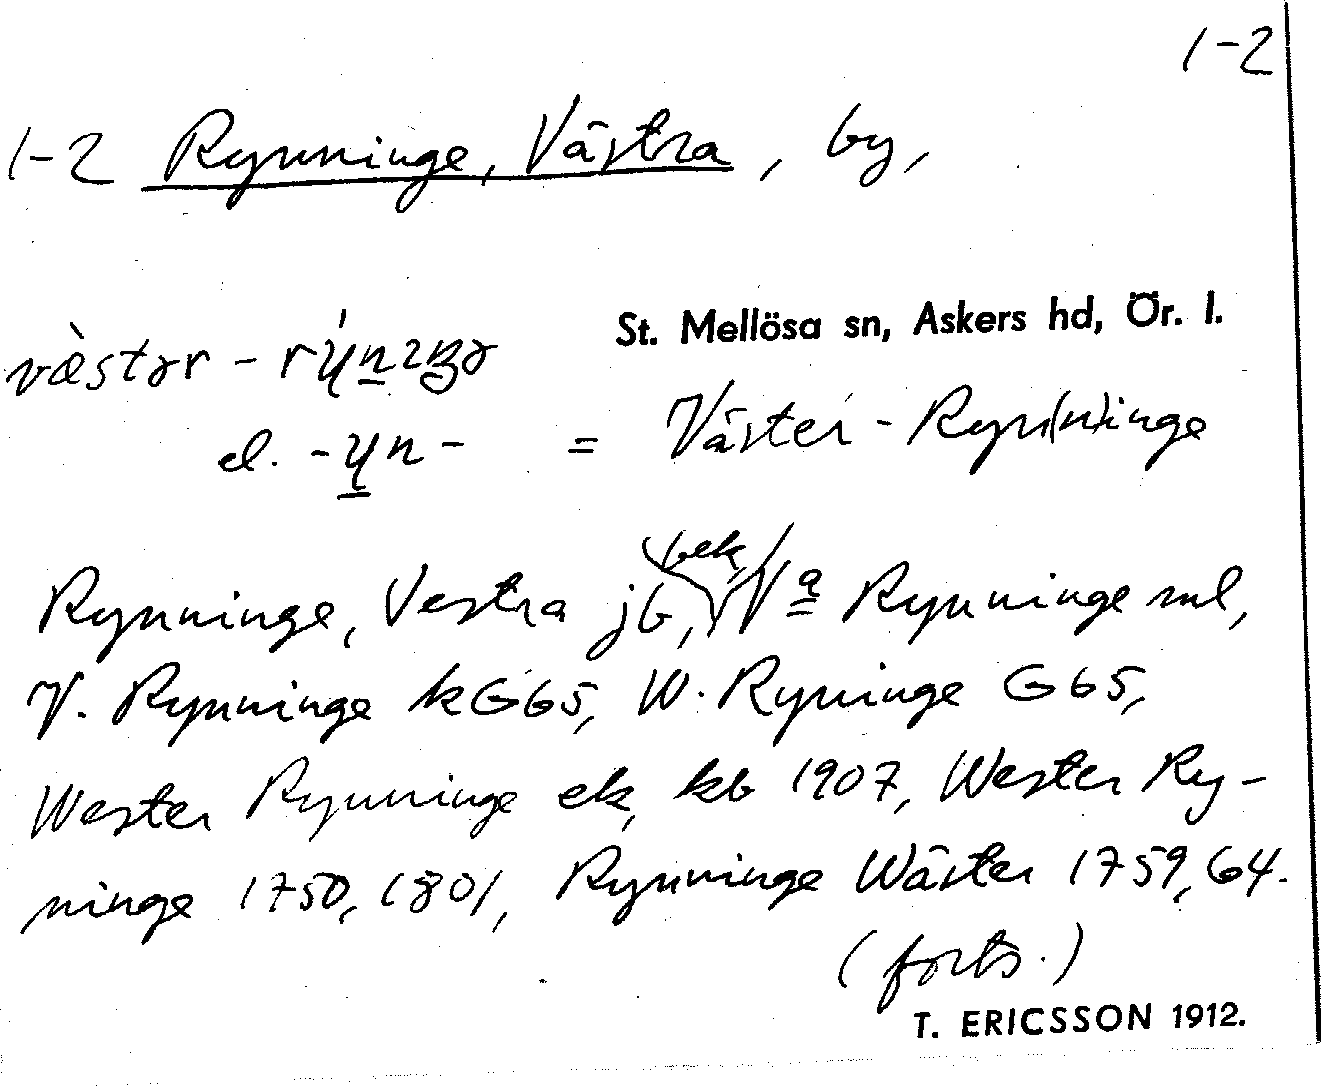 1-2
1-2 Rynninge, Västra, by,
St. Mellösa sn, Askers hd, Ör. l.
el. -yn- = Väster-Ryn(n)inge
bek,
Rynninge, Vestra jb, Va Rynninge ml,
V. Rynninge kG65, W. Ryninge G65,
Wester Rynninge ek, kb 1907, Wester Ry-
ninge 1750, 1801, Rynninge Wäster 1759, 64.
(forts.)
T. ERICSSON 1912.